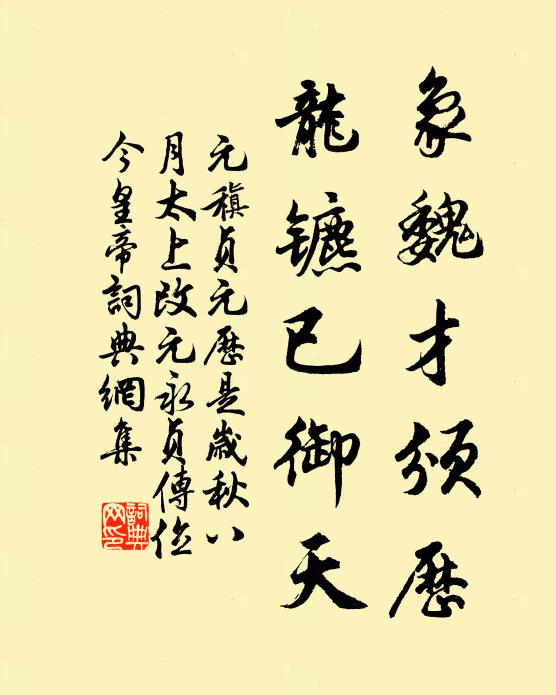 象魏才頒歷
龍鑣已御天
元稹貞元歷是歲秋八
月太上改元永貞傳位
今皇帝詞典網集
詞典网印